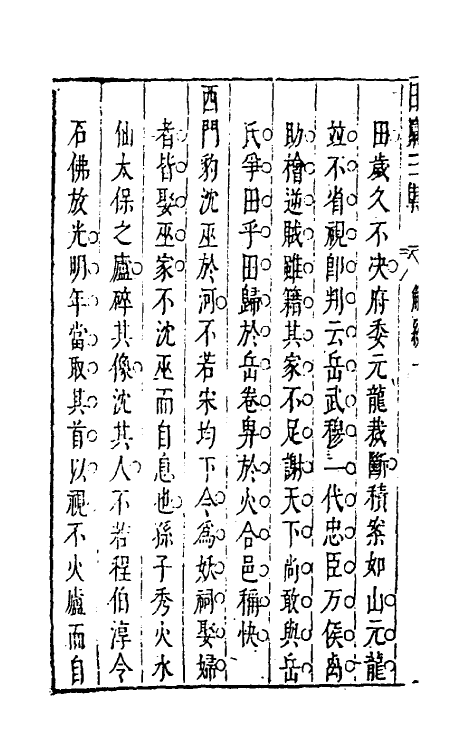 田歲久不决府委元龍裁斷積案如山元龍
竝不省視卽判云岳武穆一代忠臣万俟卨
助檜逆賊雖籍其家不足謝天下尚敢與岳
氏爭田乎田歸於岳卷畀於火合邑稱快
西門豹沈巫於河不若宋均下令爲妖祠娶婦
者皆娶巫家不沈巫而自息也孫子秀火水
仙太保之廬碎其像沈其人不若程伯淳令
石佛放光明年當取其首以視不火廬而自